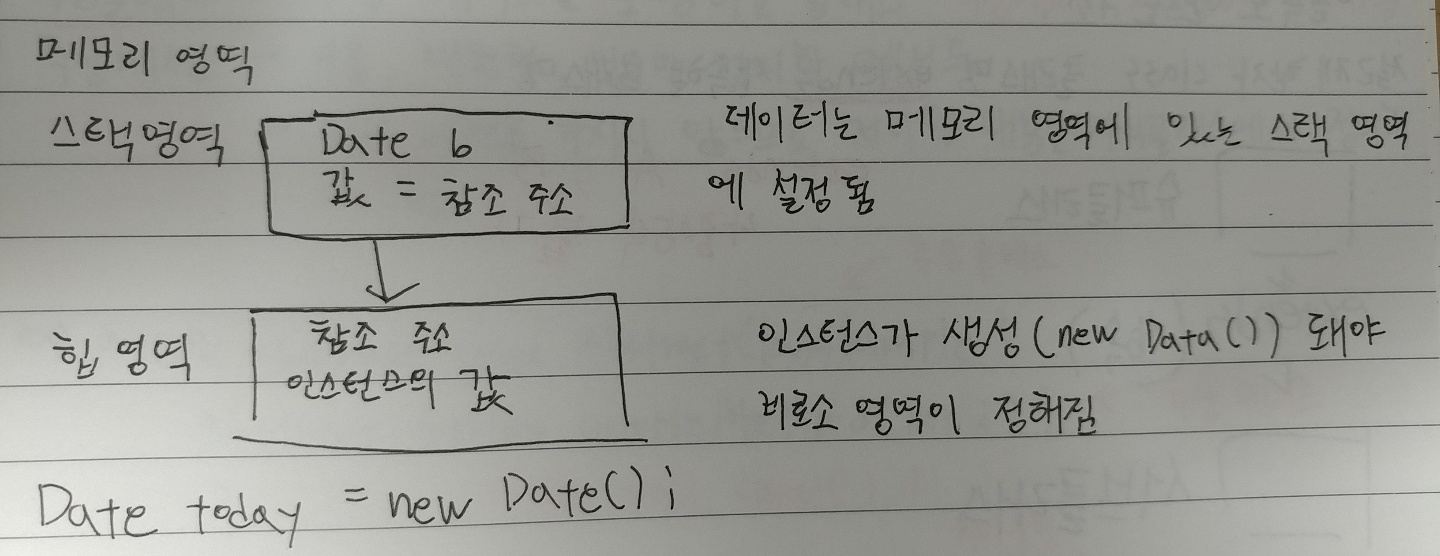 메모리 영역
스택영역
Date b
값 = 참조 주소
데이터는 메모리 영역에 있는 스택 영역
에 설정됨
힙 영역
참조 주소
인스턴스의 값
인스턴스가 생성(new Data()) 돼야
비로소 영역이 정해짐
Date today = new Date();